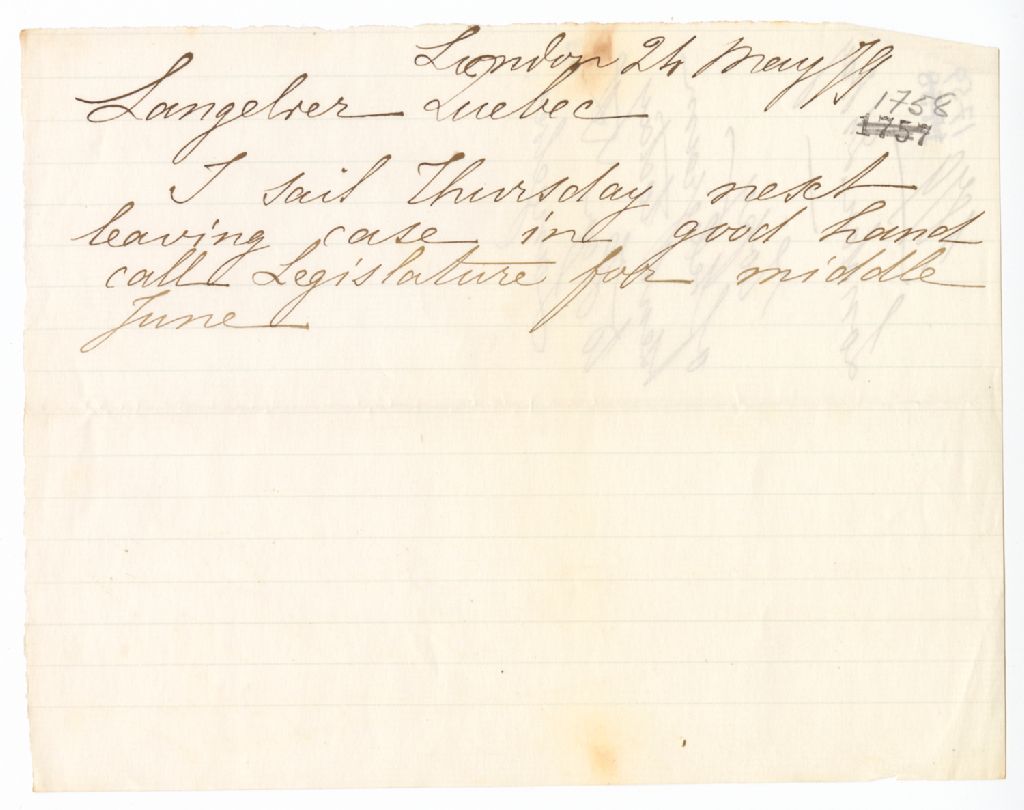 London 24 May /79
Langelier Quebec
1758
1757
I sail Thursday next
leaving case in good hand
call Legislature for middle
June